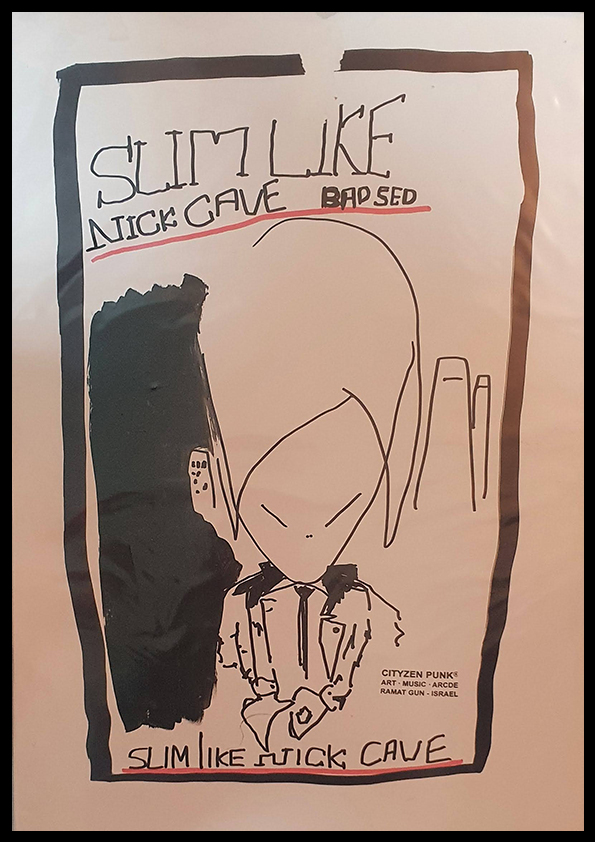 SLIM LIKE
NICK CAVE BAD SED
CITYZEN PUNK®
ART - MUSIC - ARCDE
RAMAT GUN - ISRAEL
SLIM LIKE NICK CAVE